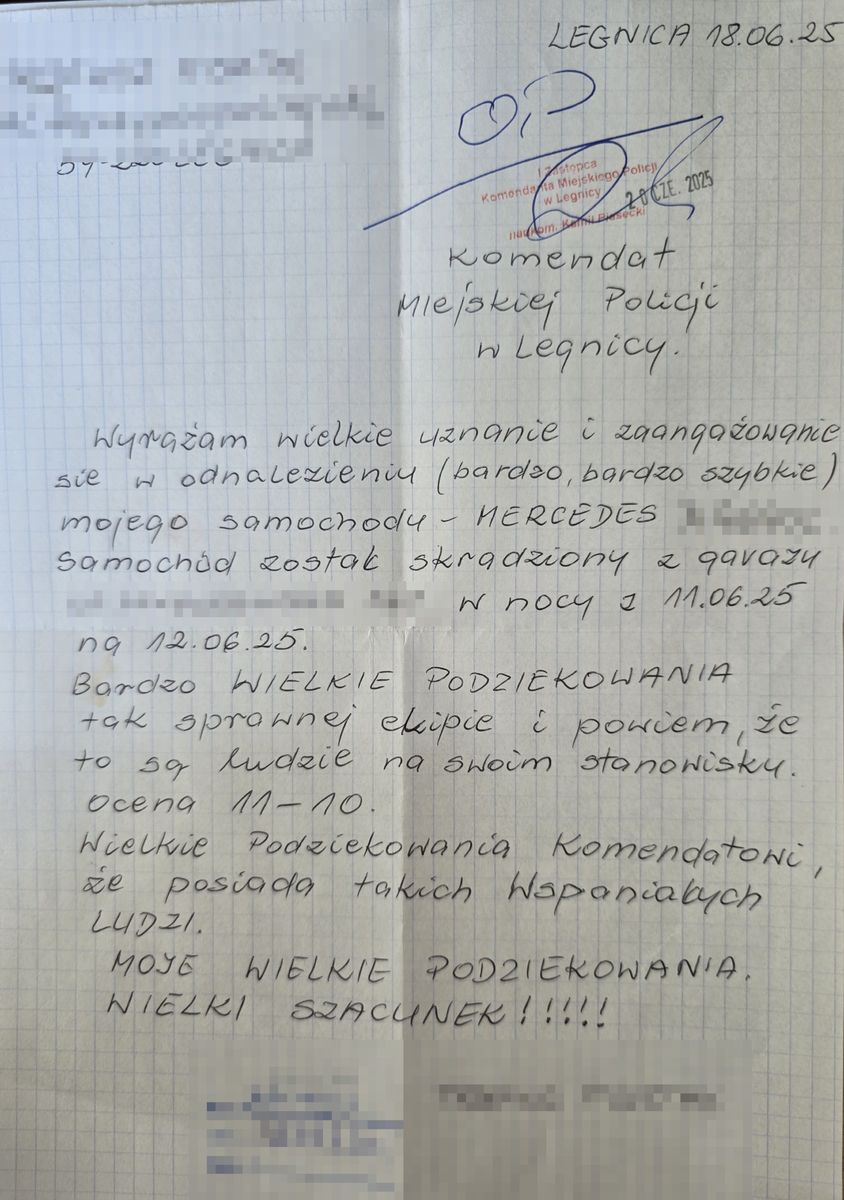 LEGNICA 18.06.25
I Zastępca
Komendanta Miejskiego Policji
w Legnicy
20 CZE. 2025
nadkom. Kamil Piasecki
Komendat
Miejskiej Policji
w Legnicy.
Wyrażam wielkie uznanie i zaangażowanie
sie w odnalezieniu (bardzo, bardzo szybkie)
mojego samochodu - MERCEDES
Samochód został skradziony z garażu
w nocy z 11.06.25
na 12.06.25.
Bardzo WIELKIE PODZIEKOWANIA
tak sprawnej ekipie i powiem, że
to są ludzie na swoim stanowisku.
Ocena 11-10.
Wielkie Podziekowania Komendatowi,
że posiada takich Wspaniałych
LUDZI.
MOJE WIELKIE PODZIEKOWANIA.
WIELKI SZACUNEK!!!!!